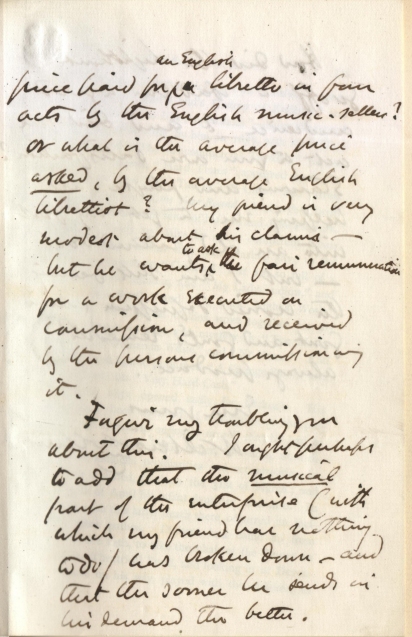 an English
price paid for a libretto in four
acts by the English music-sellers?
or what is the average price
asked, by the average English
librettist? My friend is very
modest about his claims —
to ask
but he wants the fair remuneration
for a work executed on
commission, and received
by the persons commissioning
it.
Forgive my troubling you
about this. I ought perhaps
to add that the musical
part of the enterprise (with
which my friend has nothing
to do) has broken down — and
that the sooner he sends in
his demand the better.